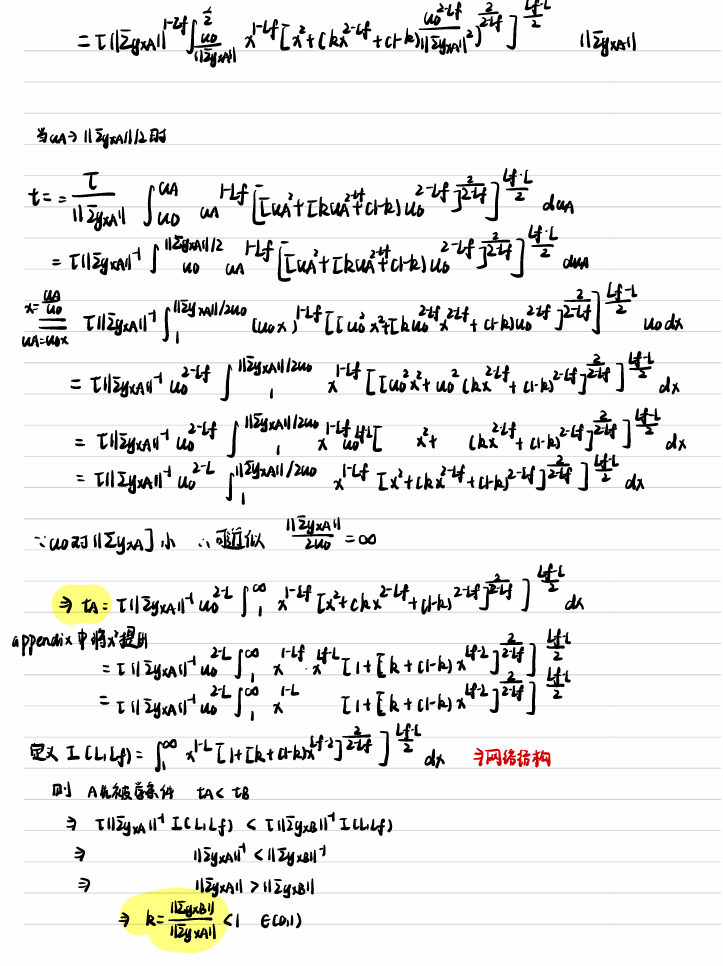 = τ||ΣyxA||^{1-Lf} ∫_{u0/||ΣyxA||}^{1/2} x^{1-Lf} [x²+(kx^{2-Lf}+(1-k) u0^{2-Lf}/||ΣyxA||²)^{2/(2-Lf)}]^{(Lf-L)/2} ||ΣyxA||
当uA→||ΣyxA||/2时
t== τ/||ΣyxA|| ∫_{u0}^{uA} uA^{1-Lf} [[uA²+[kuA^{2-Lf}+(1-k)u0^{2-Lf}]^{2/(2-Lf)}]^{(Lf-L)/2} duA
= τ||ΣyxA||^{-1} ∫_{u0}^{||ΣyxA||/2} uA^{1-Lf} [[uA²+[kuA^{2-Lf}+(1-k)u0^{2-Lf}]^{2/(2-Lf)}]^{(Lf-L)/2} duA
x=uA/u0 uA=u0x = τ||ΣyxA||^{-1} ∫_1^{||ΣyxA||/2u0} (u0x)^{1-Lf} [[u0²x²+[ku0^{2-Lf}x^{2-Lf}+(1-k)u0^{2-Lf}]^{2/(2-Lf)}]^{(Lf-L)/2} u0dx
= τ||ΣyxA||^{-1} u0^{2-Lf} ∫_1^{||ΣyxA||/2u0} x^{1-Lf} [[u0²x²+u0²(kx^{2-Lf}+(1-k)^{2-Lf}]^{2/(2-Lf)}]^{(Lf-L)/2} dx
= τ||ΣyxA||^{-1} u0^{2-Lf} ∫_1^{||ΣyxA||/2u0} x^{1-Lf} u0^{Lf-L} [ x²+ (kx^{2-Lf}+(1-k)^{2-Lf}]^{2/(2-Lf)}]^{(Lf-L)/2} dx
= τ||ΣyxA||^{-1} u0^{2-L} ∫_1^{||ΣyxA||/2u0} x^{1-Lf} [x²+(kx^{2-Lf}+(1-k)^{2-Lf}]^{2/(2-Lf)}]^{(Lf-L)/2} dx
∵u0对||ΣyxA] 小 ∴可近似 ||ΣyxA||/2u0 =∞
⇒ tA= τ||ΣyxA||^{-1} u0^{2-L} ∫_1^∞ x^{1-Lf} [x²+(kx^{2-Lf}+(1-k)^{2-Lf}]^{2/(2-Lf)}]^{(Lf-L)/2} dx
appendix中将x²提出
= τ||ΣyxA||^{-1} u0^{2-L} ∫_1^∞ x^{1-Lf}·x^{Lf-L} [1+[k+(1-k)x^{Lf-2}]^{2/(2-Lf)}]^{(Lf-L)/2}
= τ||ΣyxA||^{-1} u0^{2-L} ∫_1^∞ x^{1-L} [1+[k+(1-k)x^{Lf-2}]^{2/(2-Lf)}]^{(Lf-L)/2}
定义 I(L,Lf)= ∫_1^∞ x^{1-L} [1+[k+(1-k)x^{Lf-2}]^{2/(2-Lf)}]^{(Lf-L)/2} dx ⇒网络结构
则 A先被 条件 tA< tB
⇒ τ||ΣyxA||^{-1} I(L,Lf) < τ||ΣyxB||^{-1} I(L,Lf)
⇒ ||ΣyxA||^{-1} < ||ΣyxB||^{-1}
⇒ ||ΣyxA|| > ||ΣyxB||
⇒ k= ||ΣyxB||/||ΣyxA|| <1 ∈(0,1)